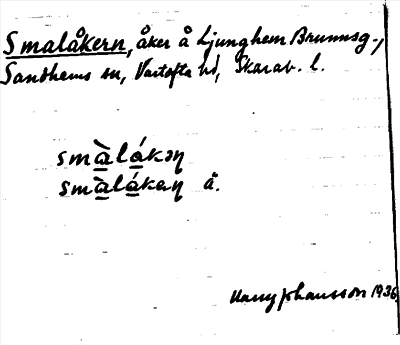 Smalåkern, åker å Ljunghem Brunnsg.,
Sandhems sn, Vartofta hd, Skarab. l.
smàlákən
smàlákaŋ å.
Harry Johansson 1936